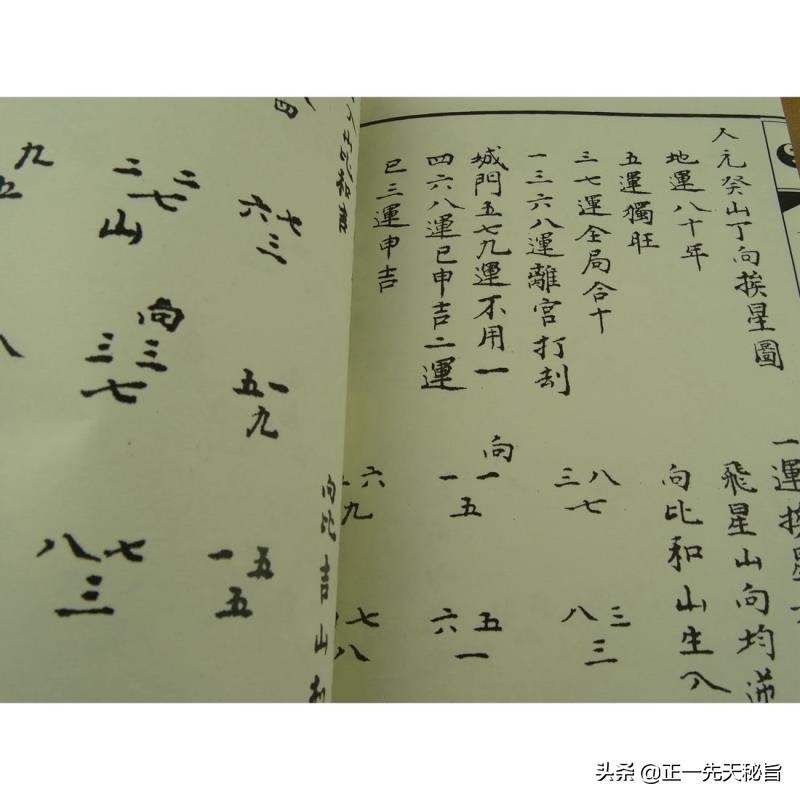 人元癸山丁向挨星圖
地運八十年
五運獨旺
三七運全局合十
一三六八運離宮打刦
城門五七九運不用一
四六八運巳申吉二運
巳三運申吉
一運挨星
飛星山向均
向比和山生入
向
八
三
七
一
一
五
六
九
三
八
三
五
六
一
七
八
四
七
六
三
二
二
七
山
九
五
向
三
三
七
一
五
九
八
五
一
五
七
八
三
向比吉山
头条 @正一先天秘旨